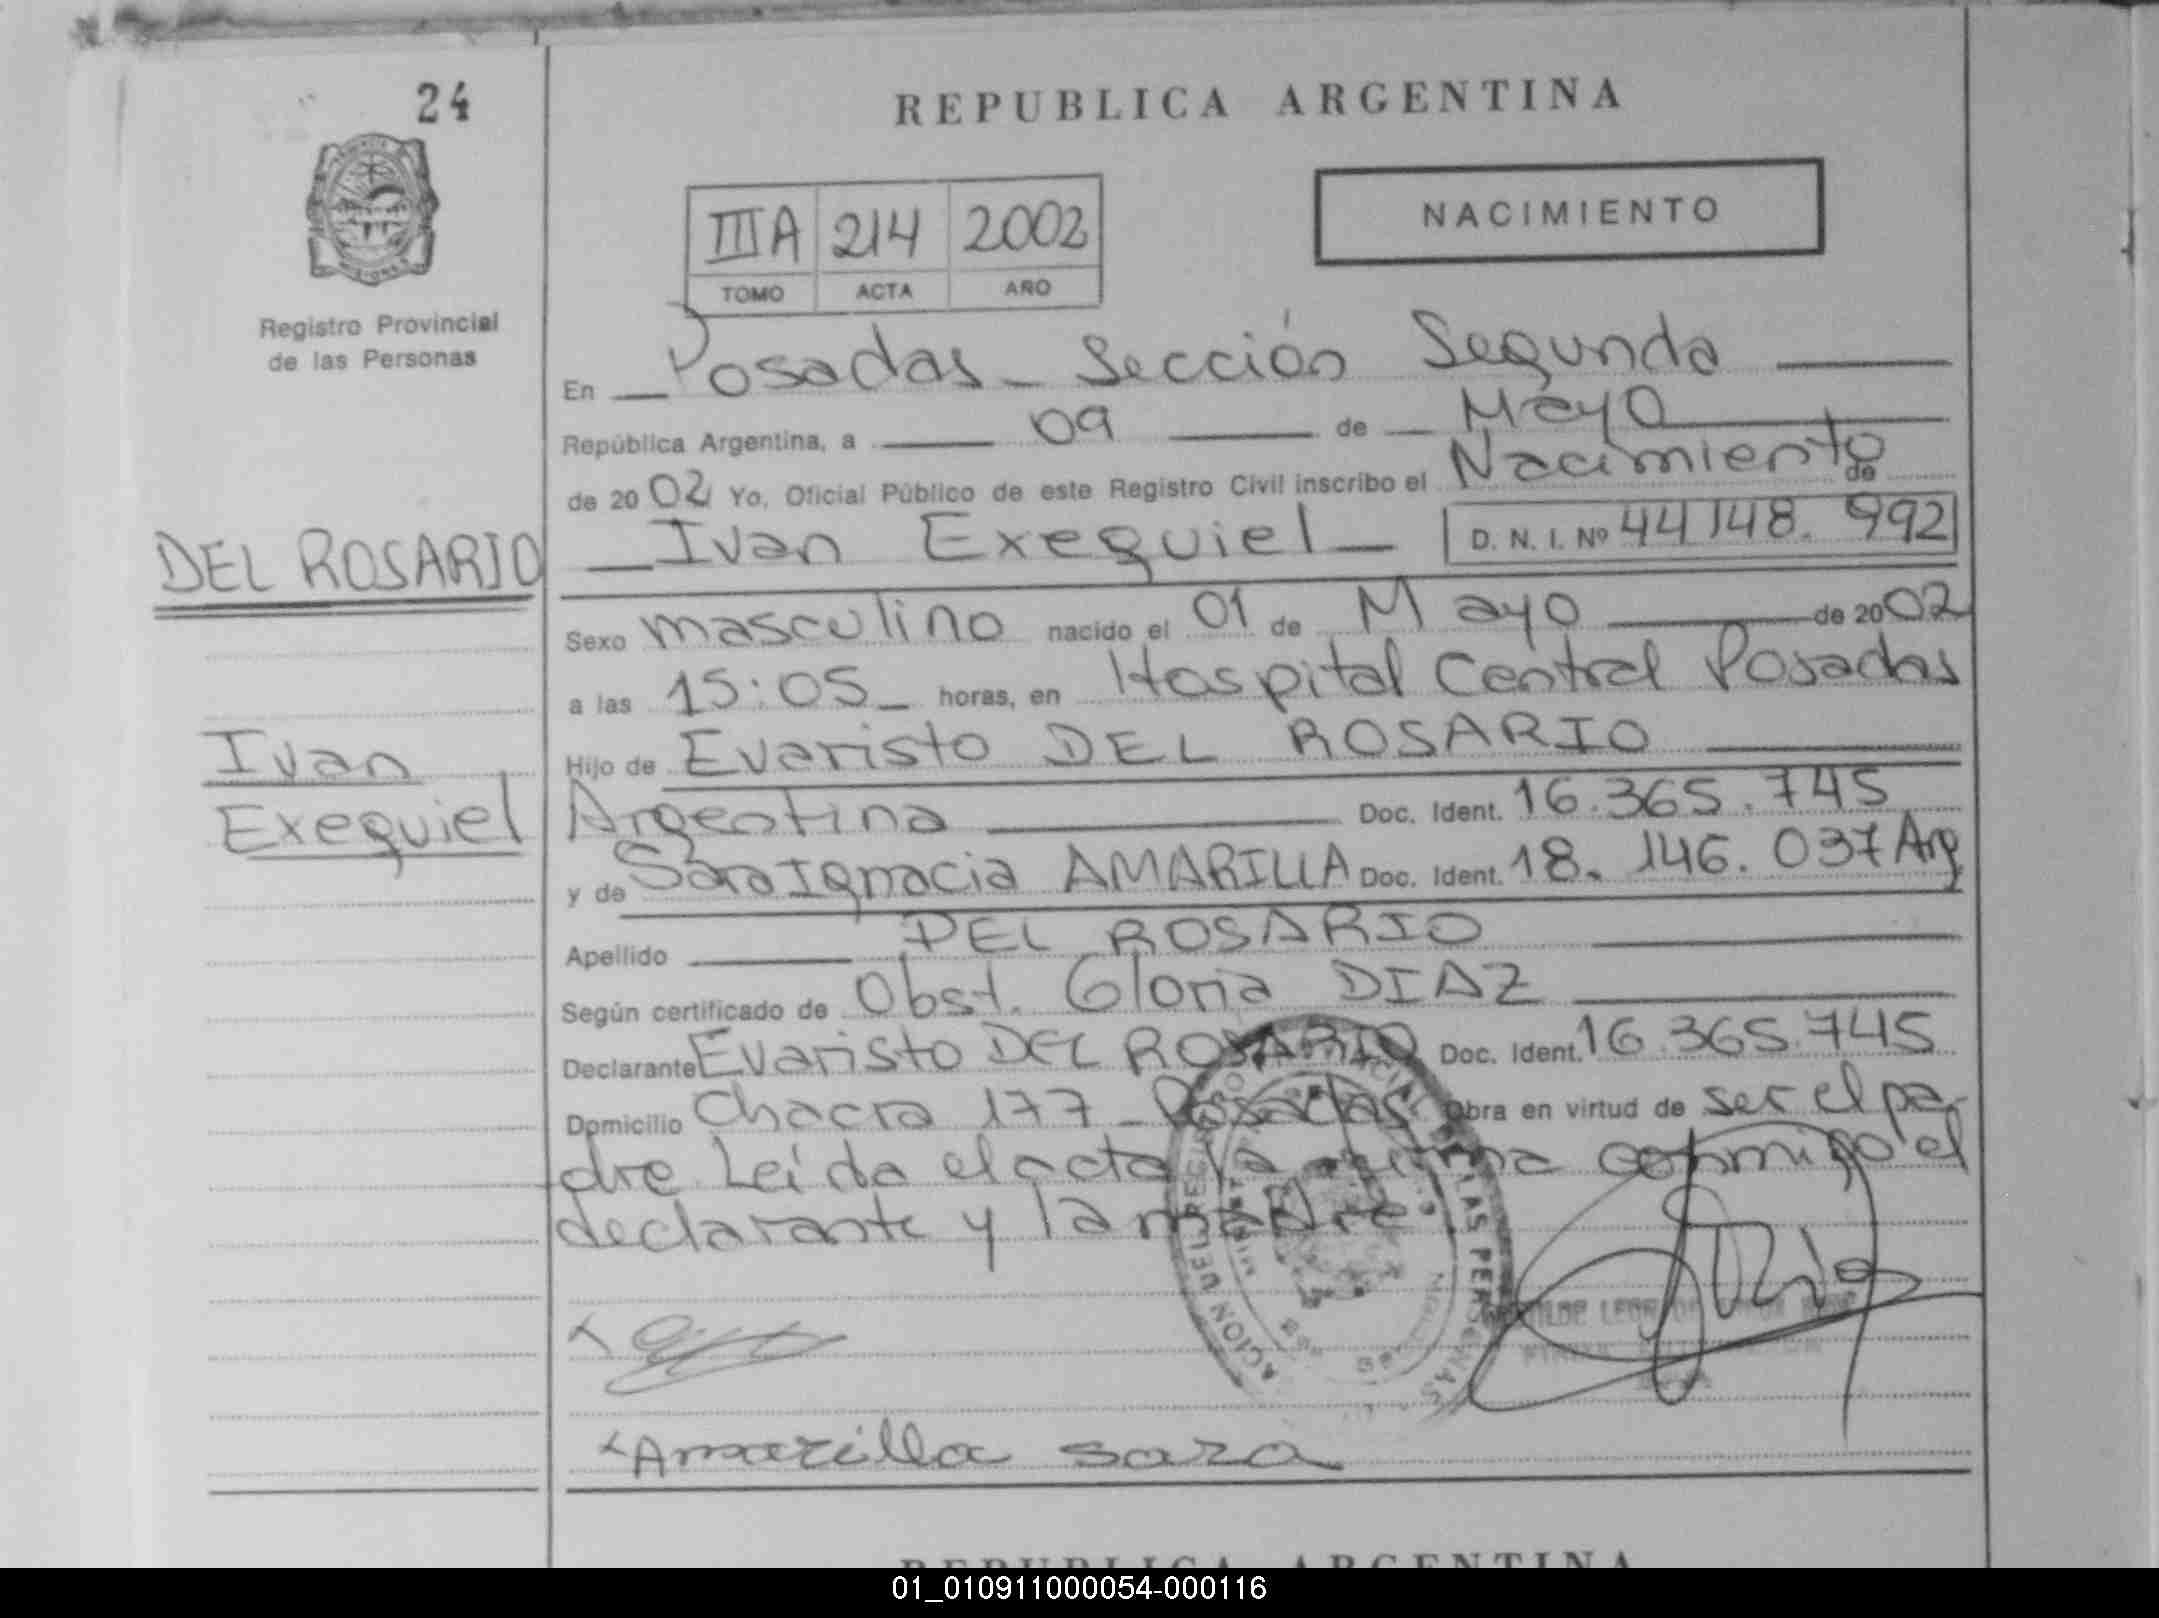 24
REPUBLICA ARGENTINA
NACIMIENTO
IIIA 214 2002
TOMO ACTA AÑO
Registro Provincial
de las Personas
En Posadas - Sección Segunda
República Argentina, a 09 de Mayo
de 2002 Yo, Oficial Público de este Registro Civil inscribo el Nacimiento de
DEL ROSARIO
Ivan Exequiel D. N. I. Nº 44148.992
Sexo masculino nacido el 01 de Mayo de 2002
a las 15:05 horas, en Hospital Central Posadas
Ivan
Exequiel
Hijo de Evaristo DEL ROSARIO
Argentina Doc. Ident. 16.365.745
y de Sara Ignacia AMARILLA Doc. Ident. 18.146.037 Arg
Apellido DEL ROSARIO
Según certificado de Obst. Gloria DIAZ
Declarante Evaristo DEL ROSARIO Doc. Ident. 16.365.745
Domicilio Chacra 177 - Posadas Obra en virtud de ser el pa-
dre Leída el acta la firma conmigo el
declarante y la madre
Amarilla sara
REPUBLICA ARGENTINA
01_010911000054-000116